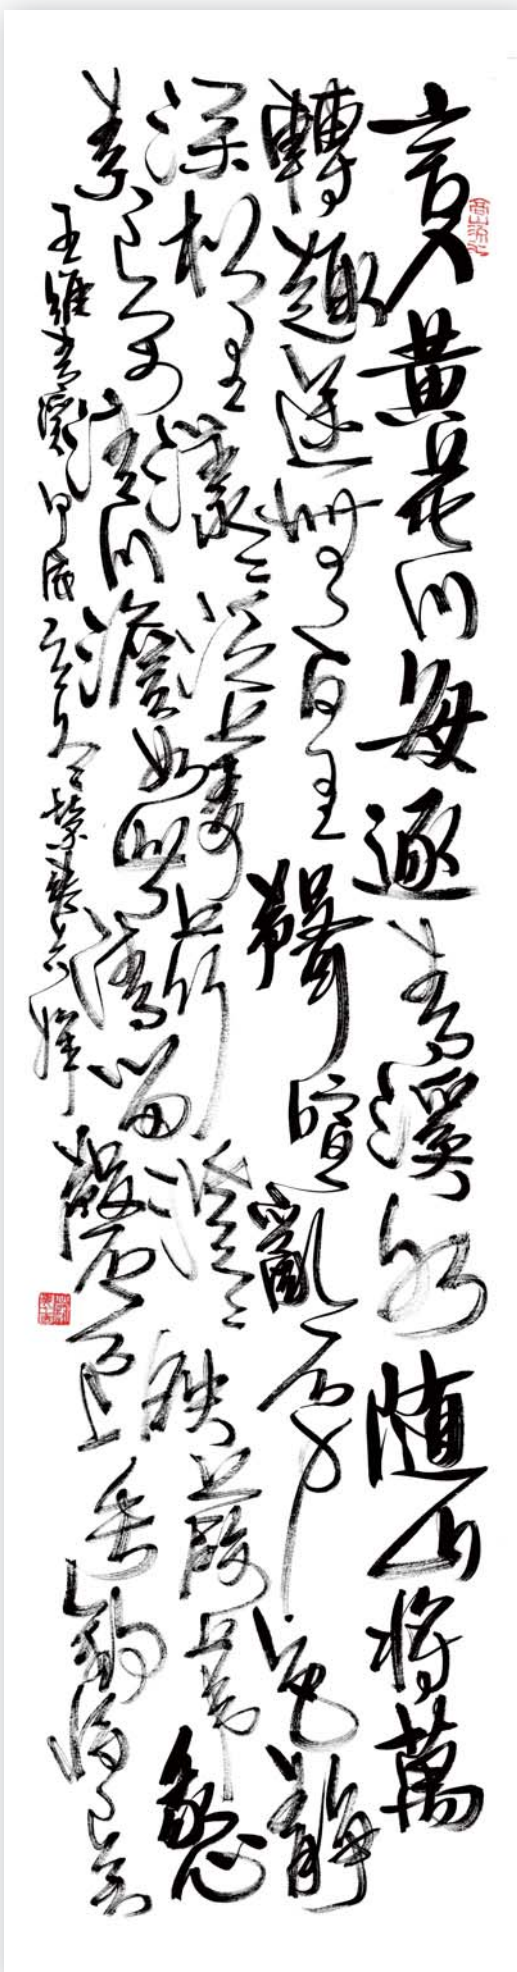 言入黃花川每逐青溪水随山將萬
轉趣途無百里聲喧亂石中色靜
深松里漾漾泛菱荇澄澄映葭葦我心
素已閑清川澹如此請留磐石上垂釣將已矣
王維青溪 甲戌